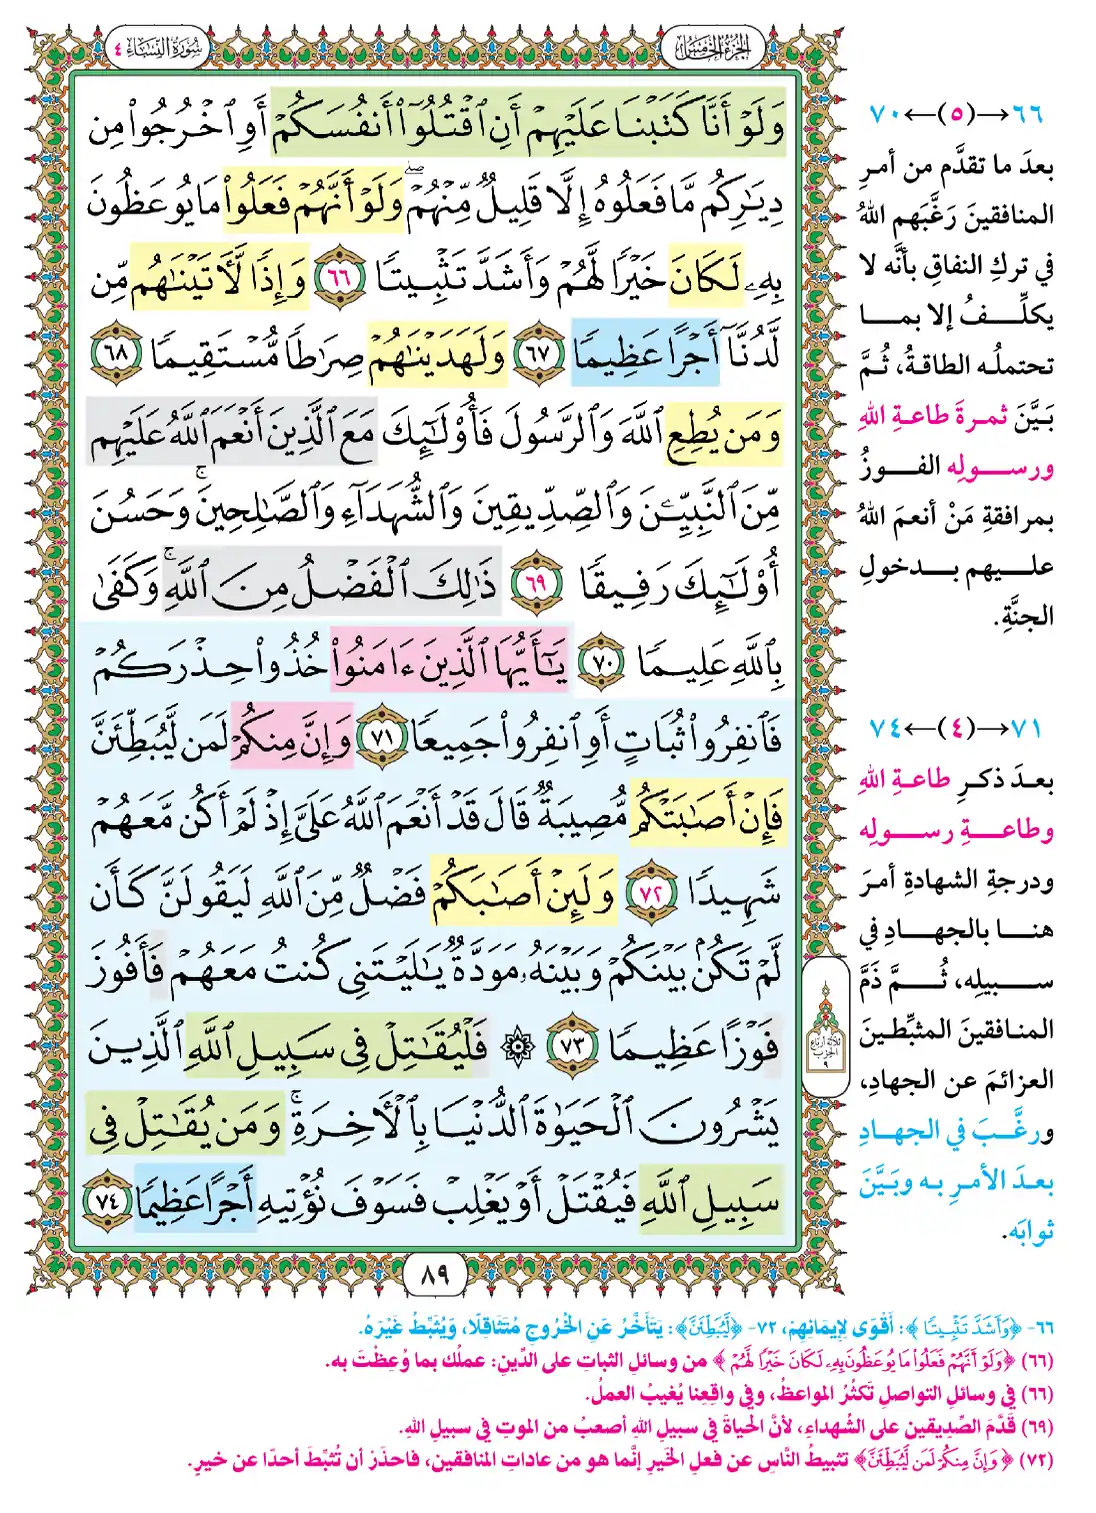 الجزء الخامس
سورة النساء ٤
وَلَوْ أَنَّا كَتَبْنَا عَلَيْهِمْ أَنِ ٱقْتُلُوٓا۟ أَنفُسَكُمْ أَوِ ٱخْرُجُوا۟ مِن
دِيَٰرِكُم مَّا فَعَلُوهُ إِلَّا قَلِيلٌ مِّنْهُمْ ۖ وَلَوْ أَنَّهُمْ فَعَلُوا۟ مَا يُوعَظُونَ
بِهِۦ لَكَانَ خَيْرًا لَّهُمْ وَأَشَدَّ تَثْبِيتًا ٦٦ وَإِذًا لَّءَاتَيْنَٰهُم مِّن
لَّدُنَّآ أَجْرًا عَظِيمًا ٦٧ وَلَهَدَيْنَٰهُمْ صِرَٰطًا مُّسْتَقِيمًا ٦٨
وَمَن يُطِعِ ٱللَّهَ وَٱلرَّسُولَ فَأُو۟لَٰٓئِكَ مَعَ ٱلَّذِينَ أَنْعَمَ ٱللَّهُ عَلَيْهِم
مِّنَ ٱلنَّبِيِّـۧنَ وَٱلصِّدِّيقِينَ وَٱلشُّهَدَآءِ وَٱلصَّٰلِحِينَ ۚ وَحَسُنَ
أُو۟لَٰٓئِكَ رَفِيقًا ٦٩ ذَٰلِكَ ٱلْفَضْلُ مِنَ ٱللَّهِ ۚ وَكَفَىٰ
بِٱللَّهِ عَلِيمًا ٧٠ يَٰٓأَيُّهَا ٱلَّذِينَ ءَامَنُوا۟ خُذُوا۟ حِذْرَكُمْ
فَٱنفِرُوا۟ ثُبَاتٍ أَوِ ٱنفِرُوا۟ جَمِيعًا ٧١ وَإِنَّ مِنكُمْ لَمَن لَّيُبَطِّئَنَّ
فَإِنْ أَصَٰبَتْكُم مُّصِيبَةٌ قَالَ قَدْ أَنْعَمَ ٱللَّهُ عَلَىَّ إِذْ لَمْ أَكُن مَّعَهُمْ
شَهِيدًا ٧٢ وَلَئِنْ أَصَٰبَكُمْ فَضْلٌ مِّنَ ٱللَّهِ لَيَقُولَنَّ كَأَن
لَّمْ تَكُنۢ بَيْنَكُمْ وَبَيْنَهُۥ مَوَدَّةٌ يَٰلَيْتَنِى كُنتُ مَعَهُمْ فَأَفُوزَ
فَوْزًا عَظِيمًا ٧٣ ۞ فَلْيُقَٰتِلْ فِى سَبِيلِ ٱللَّهِ ٱلَّذِينَ
يَشْرُونَ ٱلْحَيَوٰةَ ٱلدُّنْيَا بِٱلْءَاخِرَةِ ۚ وَمَن يُقَٰتِلْ فِى
سَبِيلِ ٱللَّهِ فَيُقْتَلْ أَوْ يَغْلِبْ فَسَوْفَ نُؤْتِيهِ أَجْرًا عَظِيمًا ٧٤
٨٩
ثلاثة أرباع
الحزب
٩
٦٦→(٥)←٧٠
بعدَ ما تقدَّم من أمرِ
المنافقينَ رَغَّبَهم اللهُ
في تركِ النفاقِ بأنَّه لا
يكلِّفُ إلا بما
تحتملُه الطاقةُ، ثُمَّ
بَيَّنَ ثمرةَ طاعةِ اللهِ
ورسولِه الفوزُ
بمرافقةِ مَنْ أنعمَ اللهُ
عليهم بدخولِ
الجنَّةِ.
٧١→(٤)←٧٤
بعدَ ذكرِ طاعةِ اللهِ
وطاعةِ رسولِه
ودرجةِ الشهادةِ أمرَ
هنا بالجهادِ في
سبيلِه، ثُمَّ ذَمَّ
المنافقينَ المثبِّطينَ
العزائمَ عن الجهادِ،
ورغَّبَ في الجهادِ
بعدَ الأمرِ به وبَيَّنَ
ثوابَه.
٦٦- ﴿وَأَشَدَّ تَثْبِيتًا﴾: أَقْوَى لِإِيمَانِهِمْ، ٧٢- ﴿لَّيُبَطِّئَنَّ﴾: يَتَأَخَّرُ عَنِ الْخُرُوجِ مُتَثَاقِلًا، وَيُثَبِّطُ غَيْرَهُ.
(٦٦) ﴿وَلَوْ أَنَّهُمْ فَعَلُوا۟ مَا يُوعَظُونَ بِهِۦ لَكَانَ خَيْرًا لَّهُمْ﴾ من وسائلِ الثباتِ على الدِّينِ: عملُك بما وُعِظْتَ به.
(٦٦) في وسائلِ التواصلِ تَكثُرُ المواعظُ، وفي واقعِنا يُغيبُ العملُ.
(٦٩) قَدَّمَ الصِّدِيقين على الشُهداءِ، لأنَّ الحياةَ في سبيلِ اللهِ أصعبُ من الموتِ في سبيلِ اللهِ.
(٧٢) ﴿وَإِنَّ مِنكُمْ لَمَن لَّيُبَطِّئَنَّ﴾ تثبيطُ النَّاسِ عن فعلِ الخَيرِ إنَّما هو من عاداتِ المنافقين، فاحذَرْ أن تُثَبِّطَ أحدًا عن خيرٍ.